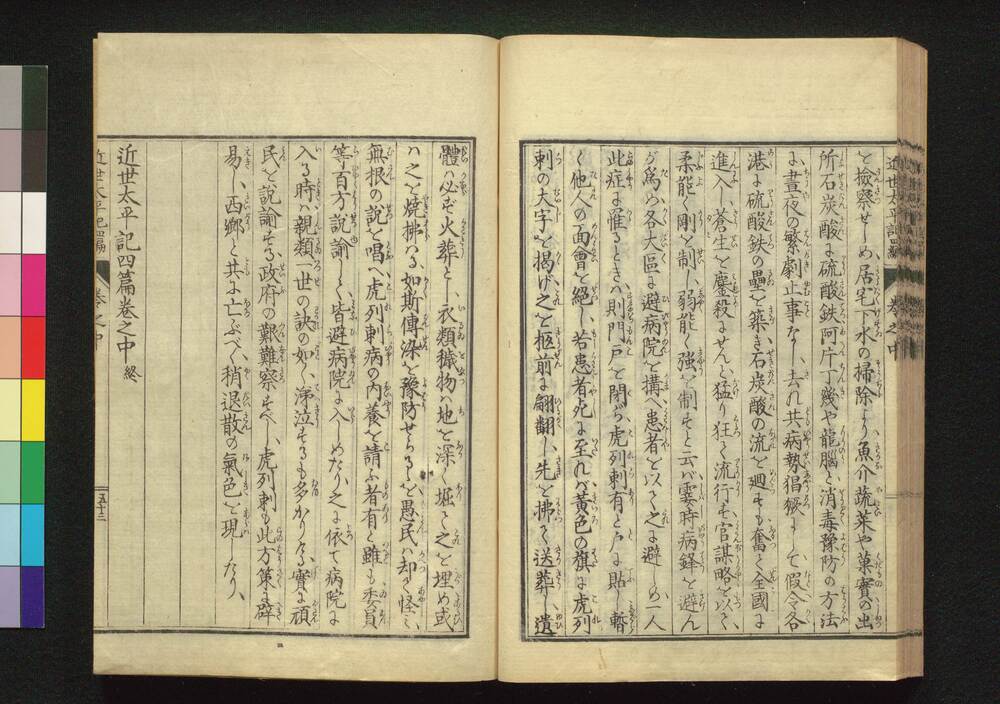 近世太平記四篇 巻之中
を撿察せしめ、居宅下水の掃除より魚介蔬菜や菓實の出
所石炭酸に硫酸鉄阿片丁幾や龍脳と消毒豫防の方法
に晝夜の繁劇止事なし、去れ共病勢猖獗にして假令各
港に硫酸鉄の壘を築き石炭酸の流を廻すも奮て全國に
進入し、蒼生を鏖殺にせんと猛り狂て流行も官謀略を以て、
柔能く剛を制し弱能く強を制すと云ば霎時病鋒を避ん
が為め各大區に避病院を搆へ患者を以て之に避しめ一人
此症に罹るときハ則門戸を閉ぢ虎列刺有と戸に貼し暫
く他人の面會を絶し、若患者死に至れバ黄色の旗に虎列
刺の大字を掲げ之を柩前に翩翻し先を拂て送葬し遺
體ハ必ず火葬とし、衣類穢物ハ地を深く堀て之を埋め或
ハ之を焼拂ハる、如斯傳染を豫防せらるゝを愚民ハ却て怪き、
無根の説を唱へ虎列刺病の内養を請ふ者有と雖も委員
等百方説諭して皆避病院に入しめたり之に依て病院に
入る時ハ親類一世の訣の如く涕泣するも多かりける、實に頑
民を説諭する政府の艱難察すべし虎列刺も此方策に辟
易し、西郷と共に亡ぶべく稍退散の氣色を現したり、
近世太平記四篇巻之中 終
近世太平記四篇 巻之中 五十三